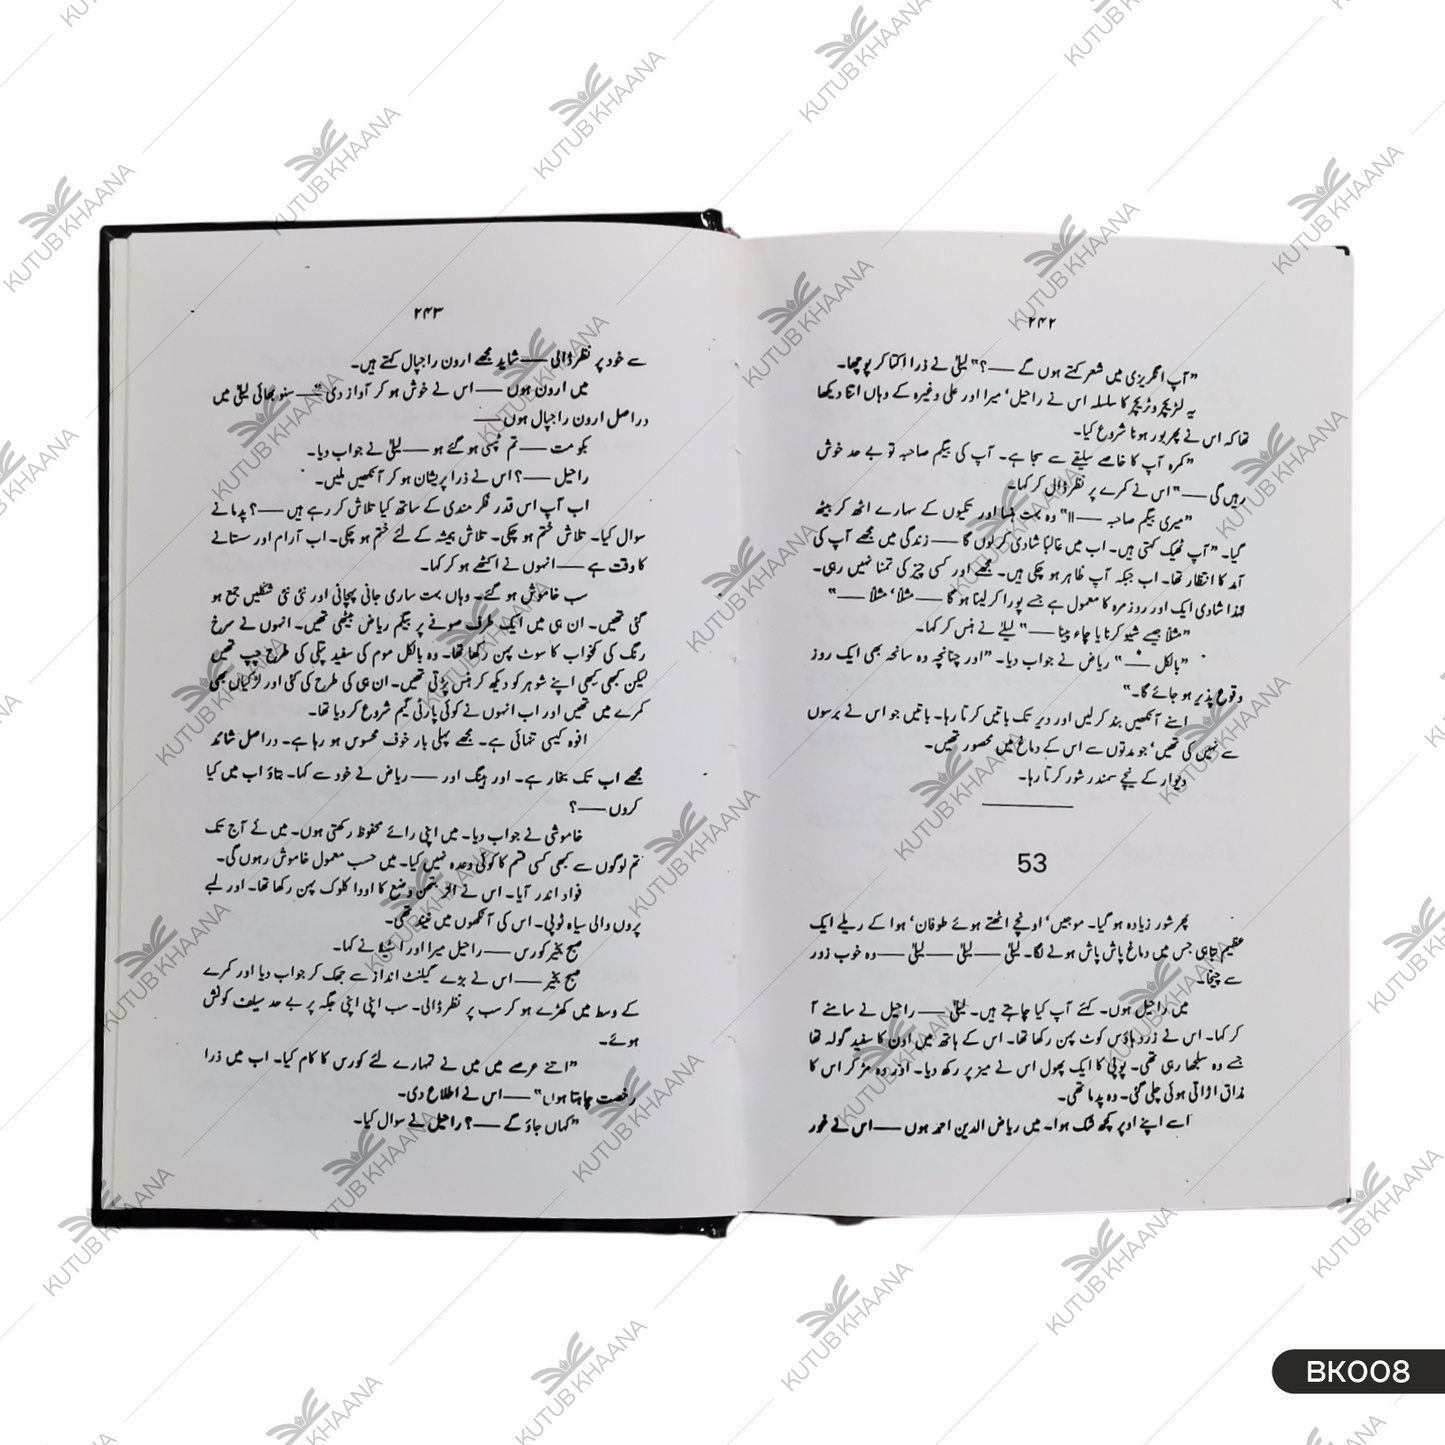 ۲۴۲
"آپ انگریزی میں شعر کہتے ہوں گے ——؟" لیلیٰ نے ذرا اکتا کر پوچھا۔
یہ لٹریچر وٹریچر کا سلسلہ اس نے راحیل' میرا اور علی وغیرہ کے وہاں اتنا دیکھا
تھا کہ اس نے پھر بور ہونا شروع کیا۔
"کمرہ آپ کا خاصے سلیقے سے سجا ہے۔ آپ کی بیگم صاحبہ تو بے حد خوش
رہیں گی ——" اس نے کمرے پر نظر ڈال کر کہا۔
"میری بیگم صاحبہ ——!!" وہ بہت ہنسا اور تکیوں کے سہارے اٹھ کر بیٹھ
گیا۔ "آپ ٹھیک کہتی ہیں۔ اب میں غالبًا شادی کر لوں گا —— زندگی میں مجھے آپ کی
آمد کا انتظار تھا۔ اب جبکہ آپ ظاہر ہو چکی ہیں۔ مجھے اور کسی چیز کی تمنا نہیں رہی۔
لہٰذا شادی ایک اور روزمرہ کا معمول ہے جسے پورا کر لینا ہو گا —— مثلاً' مثلاً ——"
"مثلاً جیسے شیو کرنا یا چاء پینا ——" لیلیٰ نے ہنس کر کہا۔
"بالکل ——" ریاض نے جواب دیا۔ "اور چنانچہ وہ سانحہ بھی ایک روز
وقوع پذیر ہو جائے گا۔"
اسنے آنکھیں بند کر لیں اور دیر تک باتیں کرتا رہا۔ باتیں جو اس نے برسوں
سے نہیں کی تھیں' جو مدتوں سے اس کے دماغ میں محصور تھیں۔
دیوار کے نیچے سمندر شور کرتا رہا۔
53
پھر شور زیادہ ہو گیا۔ موجیں' اونچے اٹھتے ہوئے طوفان' ہوا کے ریلے ایک
عظیم تباہی جس میں دماغ پاش پاش ہونے لگا۔ لیلیٰ —— لیلیٰ —— لیلیٰ —— وہ خوب زور
سے چیخا۔
میں راحیل ہوں۔ کہئے آپ کیا چاہتے ہیں۔ لیلیٰ —— راحیل نے سامنے آ
کر کہا۔ اس نے زرد ہاؤس کوٹ پہن رکھا تھا۔ اس کے ہاتھ میں اون کا سفید گولہ تھا
جسے وہ سلجھا رہی تھی۔ پوپی کا ایک پھول اس نے میز پر رکھ دیا۔ اور وہ مڑ کر اس کا
مذاق اڑاتی ہوئی چلی گئی۔ وہ پدما تھی۔
اسے اپنے اوپر کچھ شک ہوا۔ میں ریاض الدین احمد ہوں —— اس نے غور
۲۴۳
سے خود پر نظر ڈالی —— شاید مجھے ارون راجپال کہتے ہیں۔
میں ارون ہوں —— اس نے خوش ہو کر آواز دی —— سنو بھائی لیلیٰ میں
دراصل ارون راجپال ہوں ——
بکو مت —— تم ٹپسی ہو گئے ہو —— لیلیٰ نے جواب دیا۔
راحیل ——؟ اس نے ذرا پریشان ہو کر آنکھیں ملیں۔
اب آپ اس قدر فکر مندی کے ساتھ کیا تلاش کر رہے ہیں ——؟ پدما نے
سوال کیا۔ تلاش ختم ہو چکی۔ تلاش ہمیشہ کے لئے ختم ہو چکی۔ اب آرام اور سستانے
کا وقت ہے —— انہوں نے اکٹھے ہو کر کہا۔
سب خاموش ہو گئے۔ وہاں بہت ساری جانی پہچانی اور نئی نئی شکلیں جمع ہو
گئی تھیں۔ ان ہی میں ایک طرف صوفے پر بیگم ریاض بیٹھی تھیں۔ انہوں نے سرخ
رنگ کی کمخواب کا سوٹ پہن رکھا تھا۔ وہ بالکل موم کی سفید پتلی کی طرح چپ تھیں
لیکن کبھی کبھی اپنے شوہر کو دیکھ کر ہنس پڑتی تھیں۔ ان ہی کی طرح کی کئی اور لڑکیاں بھی
کمرے میں تھیں اور اب انہوں نے کوئی پارٹی گیم شروع کر دیا تھا۔
افوہ کیسی تنہائی ہے۔ مجھے پہلی بار خوف محسوس ہو رہا ہے۔ دراصل شائد
مجھے اب تک بخار ہے۔ اور ہینگ اور —— ریاض نے خود سے کہا۔ بتاؤ اب میں کیا
کروں ——؟
خاموشی نے جواب دیا۔ میں اپنی رائے محفوظ رکھتی ہوں۔ میں نے آج تک
تم لوگوں سے کبھی کسی قسم کا کوئی وعدہ نہیں کیا۔ میں حسب معمول خاموش رہوں گی۔
فواد اندر آیا۔ اس نے وضع کا اودا کلوک پہن رکھا تھا۔ اور لمبے
پروں والی سیاہ ٹوپی۔ اس کی آنکھوں میں نیند تھی۔
صبح بخیر کورس —— راحیل میرا اور نے کہا۔
صبح بخیر —— اس نے بڑے گیلنٹ انداز سے جھک کر جواب دیا اور کمرے
کے وسط میں کھڑے ہو کر سب پر نظر ڈالی۔ سب اپنی اپنی جگہ پر بے حد سیلف کونشس
ہوئے۔
"اتنے عرصے میں میں نے تمہارے لئے کورس کا کام کیا۔ اب میں ذرا
رخصت چاہتا ہوں" —— اس نے اطلاع دی۔
"کہاں جاؤ گے ——؟ راحیل نے سوال کیا۔
KUTUB KHAANA
BK008